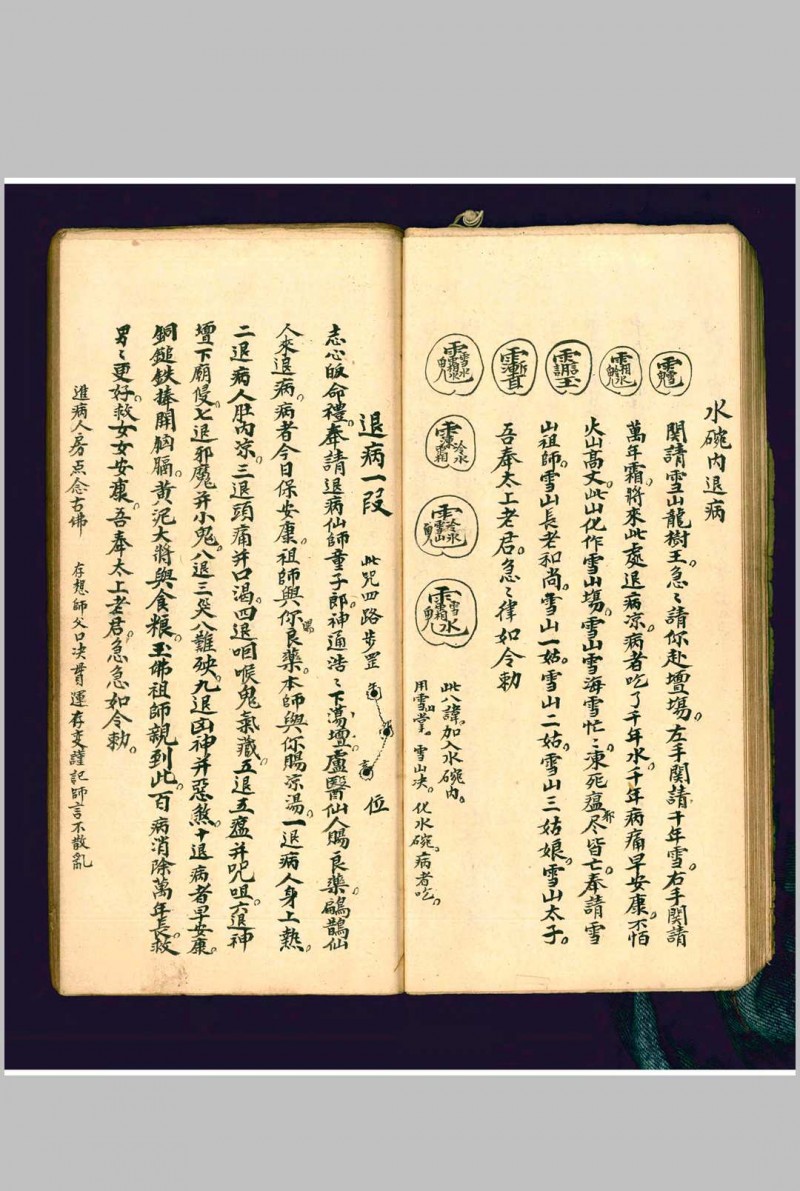 水碗內退病
関請雪山龍樹王。急〻請你赴壇塲。左手関請千年雪。右手関請
萬年霜。將來此處退病凉。病者吃了千年水。千年病痛早安康。不怕
火山高丈。此山化作雪山塲。雪山雪海雪忙〻。凍死瘟邪尽皆亡。奉請雪
山祖師。雪山長老和尚。雪山一姑。雪山二姑。雪山三姑娘。雪山太子。
吾奉太上老君。急〻律如令勅
此八諱。加入水碗內。
用雪山掌。雪山决。化水碗。病者吃。
退病一段 此咒四路步罡 位
志心皈命禮。奉請退病仙師童子郎。神通浩〻下蕩壇。盧醫仙人賜良藥。扁鵲仙
人來退病。病者今日保安康。祖師與你良藥。本師與你賜凉湯。一退病人身上熱。
二退病人肚內凉。三退頭痛并口渴。四退咽喉鬼氣藏。五退五瘟并咒咀。六退神
壇下廟侵。七退邪魔并小鬼。八退三災八難殃。九退凶神并惡煞。十退病者早安康。
銅鎚鉄捧開胸膈。黄泥大將與食粮。玉佛祖師親到此。百病消除萬年長。救
男〻更好。救女女安康。吾奉太上老君。急急如令勅。
進病人房点念古佛 存想師父口决 運存变謹記師言不散亂